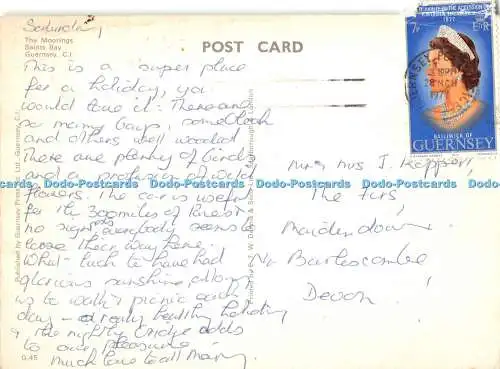 Saturday,
The Moorings
Saints Bay
Guernsey. C.I.
POST CARD
This is a super place
for a holiday, you
would love it. There are
so many bays, some
and others well wooded
There are plenty of birds
and a profusion of wild
flowers. The car is useful
for the 300 miles of lanes
no sign everybody seems to
loose their way here.
What luck to have had
glorious sunshine, allows
us to walk & picnic each
day – a really healthy holiday
& the nightly bridge adds
to our pleasure.
much love to all Mary
Mrs J.
The Firs
Maidendown
Nr
Devon
1977
E R
BAILIWICK OF
GUERNSEY
Published by Guernsey Press Co. Ltd., Guernsey, C.I.
G.45
Dodo-Postcards Dodo-Postcards Dodo-Postcards Dodo-Postcards Dodo-Postcards